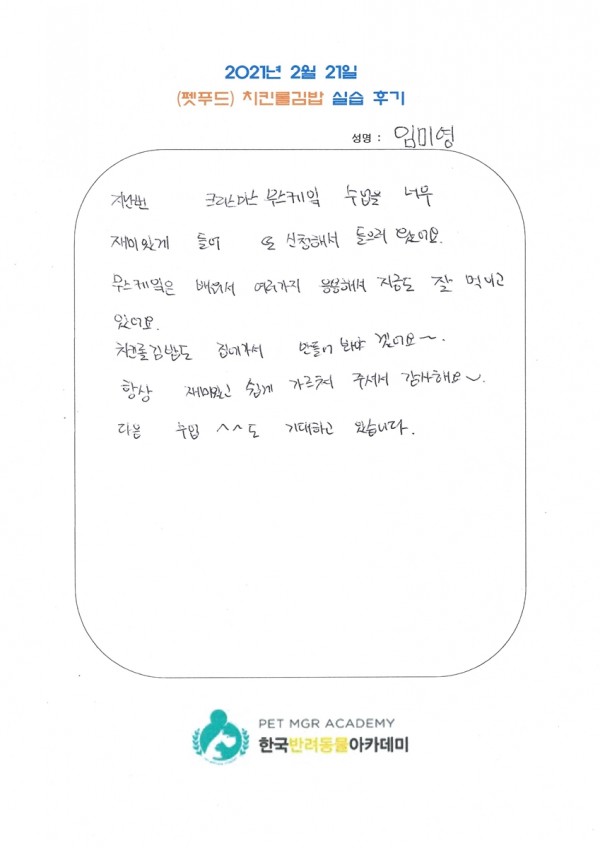 2021년 2월 21일
(펫푸드) 치킨롤김밥 실습 후기
성명 : 임미영
지난번 크리스마스 무스케잌 수업을 너무
재미있게 들어 또 신청해서 들으러 왔어요.
무스케잌은 배워서 여러가지 응용해서 지금도 잘 먹이고
있어요.
치킨롤김밥도 집에가서 만들어 봐야 겠어요~.
항상 재미있고 쉽게 가르쳐 주셔서 감사해요~.
다음 수업 ^^도 기대하고 있습니다.
PET MGR ACADEMY
한국반려동물아카데미